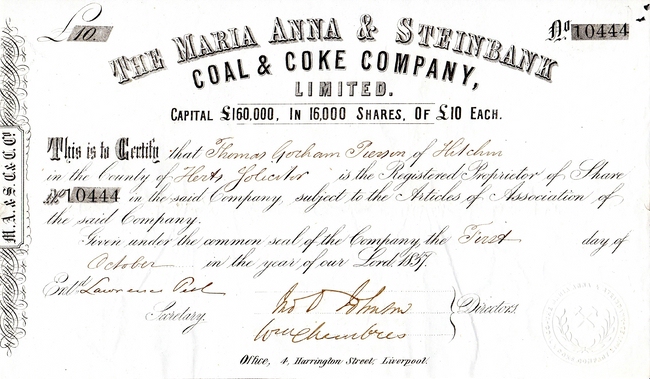 £10. No 10444
THE MARIA ANNA & STEINBANK
COAL & COKE COMPANY,
LIMITED.
CAPITAL £160,000, IN 16,000 SHARES, OF £10 EACH.
This is to Certify that Thomas Gorham Pierson of Hitchin
in the County of Herts Solicitor is the Registered Proprietor of Share
No 10444 in the said Company, subject to the Articles of Association of
the said Company.
Given under the common seal of the Company, the First day of
October in the year of our Lord 1857.
Entd Lawrence Peel
Secretary.
Jno D Johnson
Wm Chambres
Directors.
Office, 4, Harrington Street, Liverpool.
M.A. & S.C. & C. Co